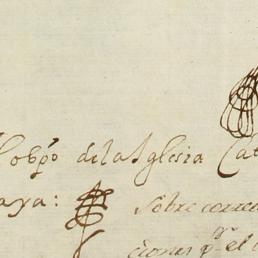 obpo de la Iglesia Cat
aya:
sobre correc
ciones q el